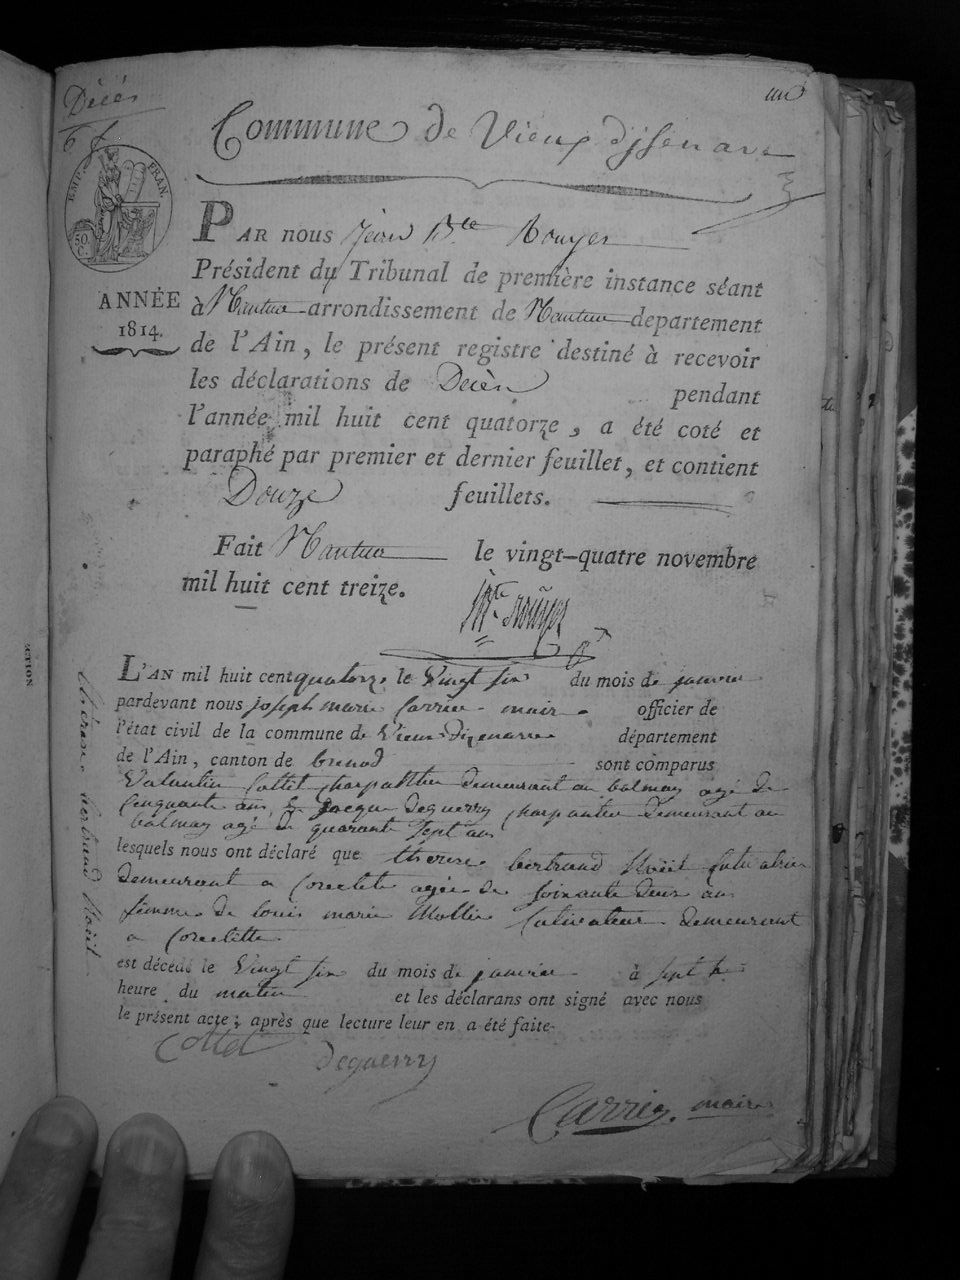 Décès
un
Commune de Vieux d'jsenave
EMP. FRAN.
50 C.
ANNÉE
1814.
PAR nous Jean Bte Rouyer
Président du Tribunal de première instance séant
à Nantua arrondissement de Nantua departement
de l'Ain, le présent registre destiné à recevoir
les déclarations de Décès pendant
l'année mil huit cent quatorze, a été coté et
paraphé par premier et dernier feuillet, et contient
Douze feuillets.
Fait Nantua le vingt-quatre novembre
mil huit cent treize.
Bte Rouyer
L'AN mil huit cent quatorze le Vingt six du mois de janvier
pardevant nous joseph marie Carrier maire officier de
l'état civil de la commune de Vieux Dizenave département
de l'Ain, canton de brenod sont comparus
Valentin Cottet charpentier demeurant au balmay agé de
Cinquante ans & Jacque Deguerry charpentier demeurant au
balmay agé de quarante sept ans
lesquels nous ont déclaré que therese bertrand
demeurant a Corcelette agée de soixante deux ans
femme de louis marie Mollie Cultivateur demeurant
a Corcelette
est décédé le Vingt six du mois de janvier à sept h
heure du matin et les déclarans ont signé avec nous
le présent acte; après que lecture leur en a été faite
Cottet Deguerry
Carrier. maire
therese bertrand
CTION